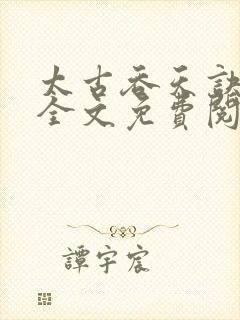 太古吞天訣
全文免費閱
譚宇宸